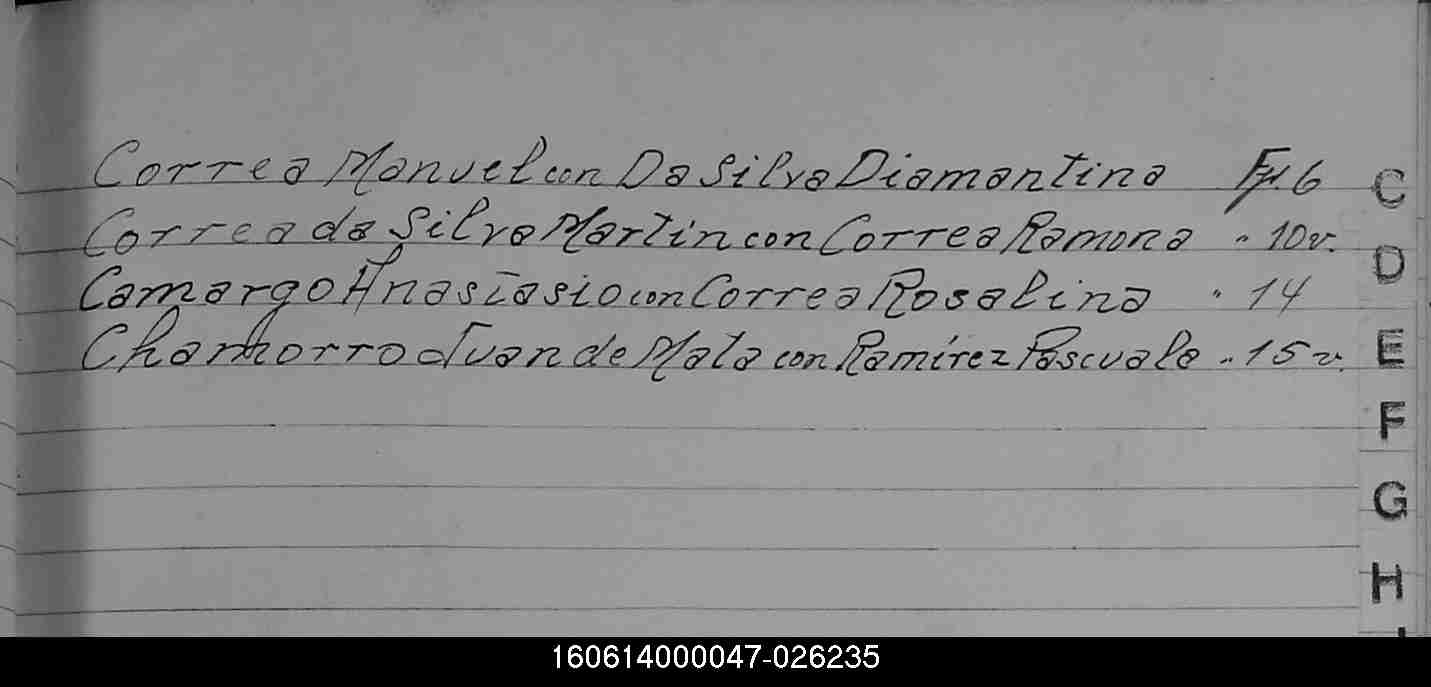 Correa Manuel con Da Silva Diamantina Fs. 6
Correa da Silva Martin con Correa Ramona " 10v.
Camargo Anastasio con Correa Rosalina " 14
Chamorro Juan de Mata con Ramírez Pascuala " 15 v.
C
D
E
F
G
H
160614000047-026235